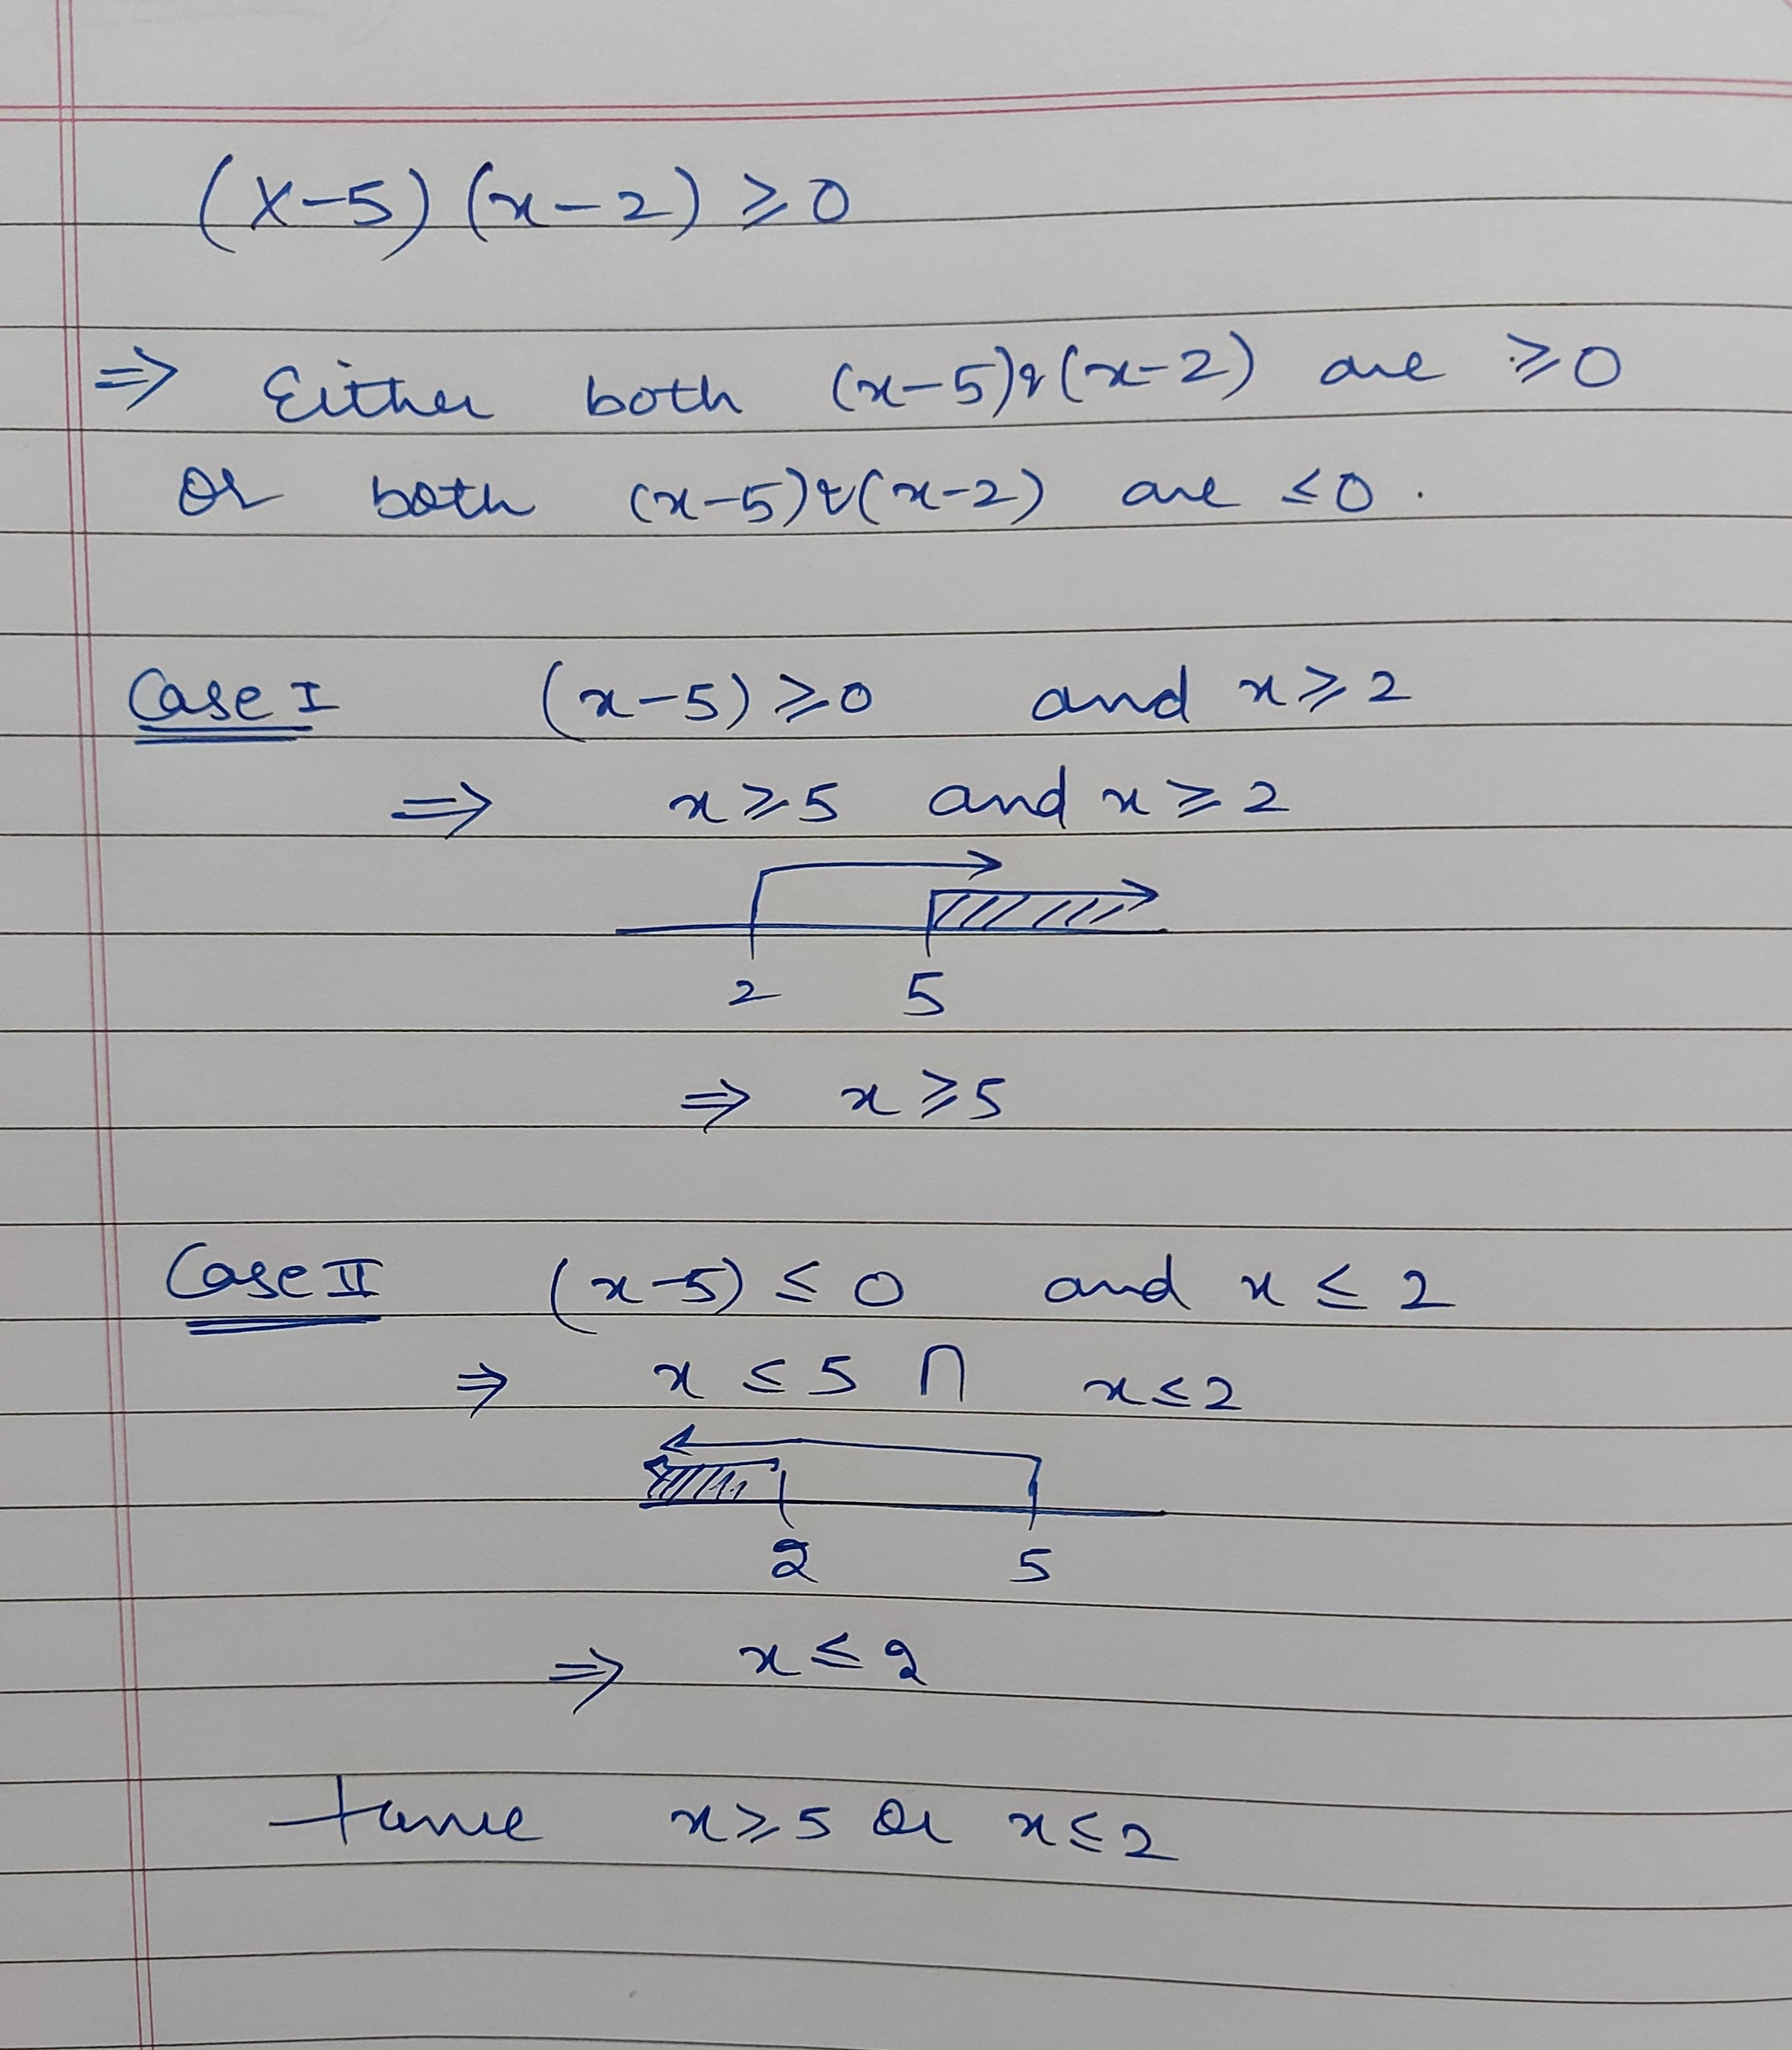 (x-5) (x-2) ⩾ 0
⇒ Either both (x-5) & (x-2) are ⩾ 0
or both (x-5) & (x-2) are ≤ 0.
Case I (x-5) ⩾ 0 and x ⩾ 2
⇒ x ⩾ 5 and x ⩾ 2
2 5
⇒ x ⩾ 5
Case II (x-5) ≤ 0 and x ≤ 2
⇒ x ≤ 5 ∩ x ≤ 2
2 5
⇒ x ≤ 2
Hence x ⩾ 5 or x ≤ 2